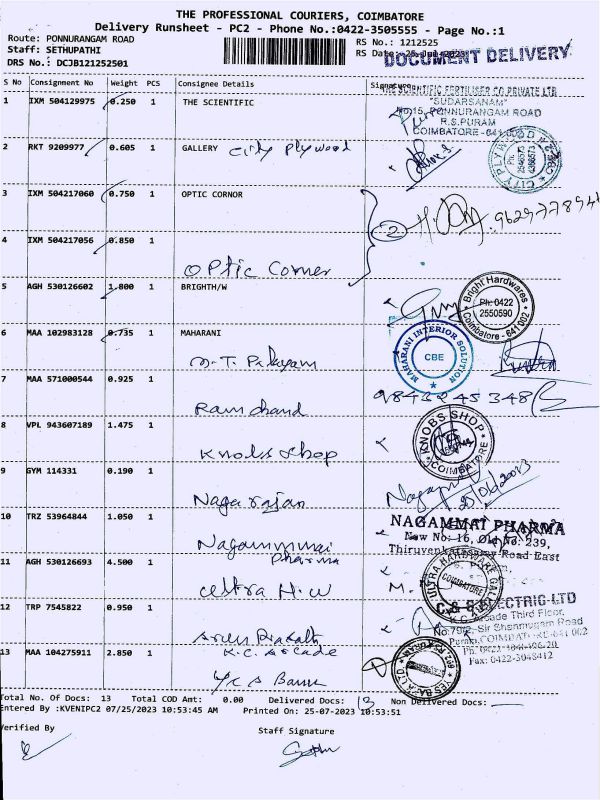 THE PROFESSIONAL COURIERS, COIMBATORE
Delivery Runsheet - PC2 - Phone No.:0422-3505555 - Page No.:1
Route: PONNURANGAM ROAD
RS No.: 1212525
Staff: SETHUPATHI
RS Date.: 25-Jul-2023
DOCUMENT DELIVERY
DRS No.: DCJB121252501
S No Consignment No Weight PCS Consignee Details Signature
THE SCIENTIFIC FERTILISER CO PRIVATE LTD
"SUDARSANAM"
No.15, PONNURANGAM ROAD
R.S.PURAM
COIMBATORE-641 002
1 IXM 504129975 0.250 1 THE SCIENTIFIC
2 RKT 9209977 0.605 1 GALLERY City Plywood
CITY PLYWOOD
CBE-2
3 IXM 504217060 0.750 1 OPTIC CORNOR
2
4 IXM 504217056 0.850 1
Optic Corner
5 AGH 530126602 1.800 1 BRIGHTH/W
Bright Hardwares
Ph: 0422
2550590
Coimbatore - 641 002
6 MAA 102983128 0.735 1 MAHARANI
MAHARANI INTERIOR SOLUTION
CBE
7 MAA 571000544 0.925 1
Ramchand
8 VPL 943607189 1.475 1
Knobs shop
KNOBS SHOP
COIMBATORE
9 GYM 114331 0.190 1
Nagarajan
10 TRZ 53964844 1.050 1
Nagammai
Pharma
NAGAMMAI PHARMA
New No: 16, Old No: 239,
Thiruvenkatasamy Road East
11 AGH 530126693 4.500 1
Ultra H.W
COIMBATORE
12 TRP 7545822 0.950 1
Arun Prakash
K.C. Arcade
C & S ELECTRIC LTD
K.C. Arcade Third Floor,
Sir Shanmugam Road
Fax: 0422-3048412
13 MAA 104275911 2.850 1
Yes Bank
YES BANK LTD
Total No. Of Docs: 13 Total COD Amt: 0.00 Delivered Docs: 13 Non Delivered Docs:
Entered By :KVENIPC2 07/25/2023 10:53:45 AM Printed On: 25-07-2023 10:53:51
Verified By
Staff Signature